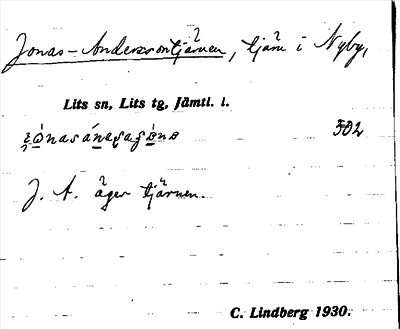 Jonas-Anderssontjärnen, tjärn i Nyby,
Lits sn, Lits tg, Jämtl. l.
502
J. A. äger tjärnen.
C. Lindberg 1930.